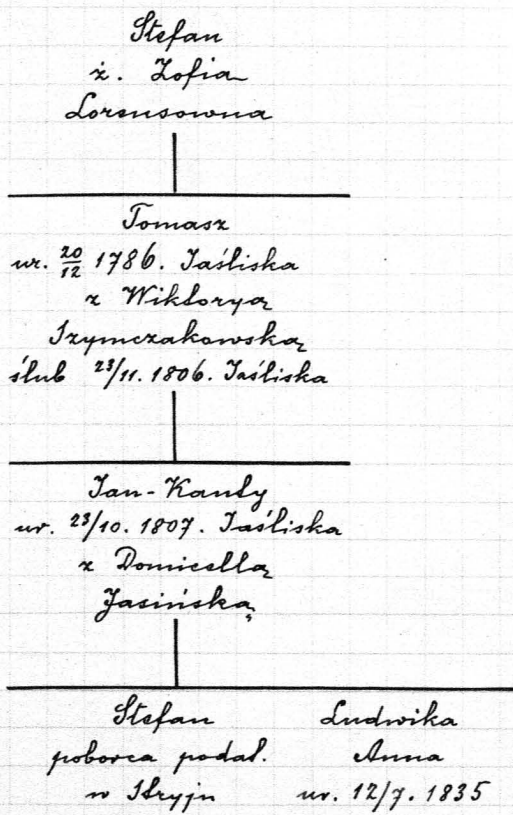 Stefan
ż. Zofia
Lorensowna
Tomasz
ur. 20/12 1786. Jaśliska
z Wiktoryą
Szymczakowską
ślub 23/11. 1806. Jaśliska
Jan-Kanty
ur. 23/10. 1807. Jaśliska
z Domicellą
Jasińską
Stefan Ludwika
poborca podat. Anna
w Stryju ur. 12/7. 1835